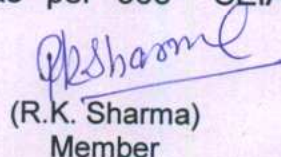 RKSharma
(R.K. Sharma)
Member